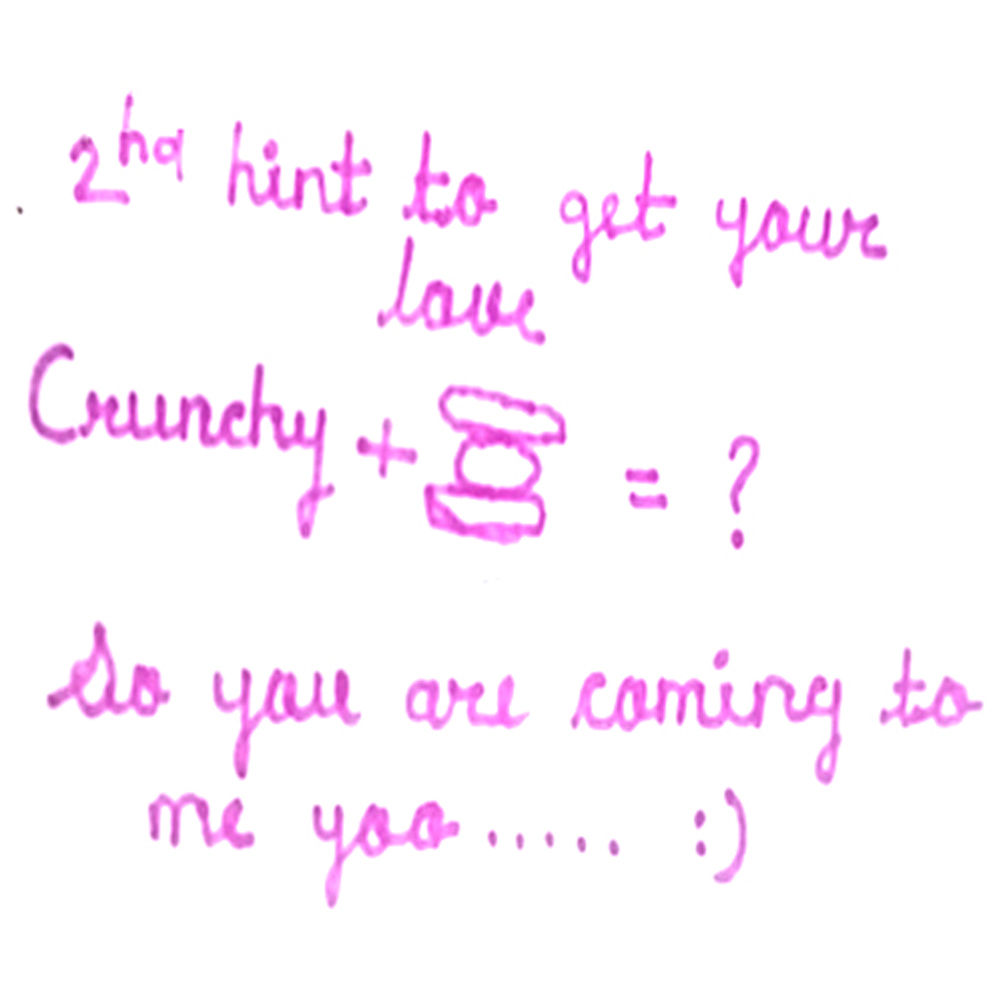 2nd hint to get your
love
Crunchy + = ?
So you are coming to
me yoo ..... :)